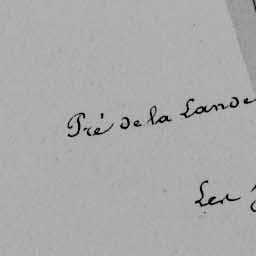 Pré de la Lande
Les